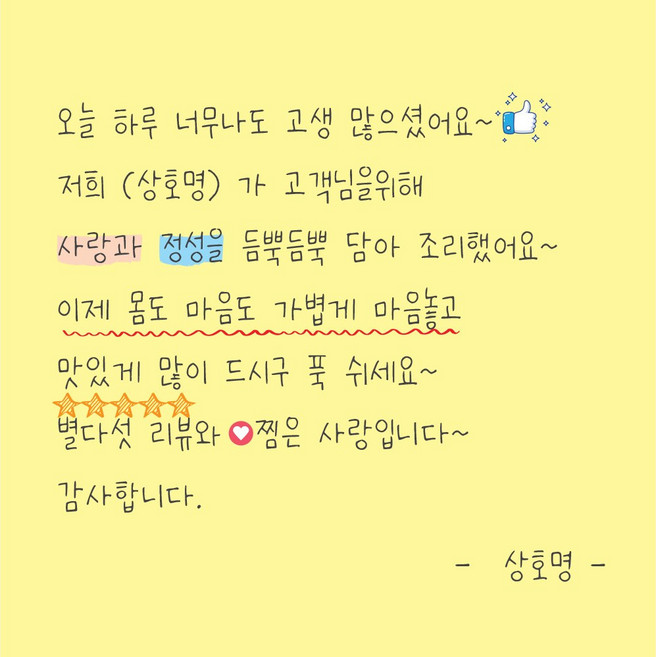 오늘 하루 너무나도 고생 많으셨어요~
저희 (상호명) 가 고객님을위해
사랑과 정성을 듬뿍듬뿍 담아 조리했어요~
이제 몸도 마음도 가볍게 마음놓고
맛있게 많이 드시구 푹 쉬세요~
별다섯 리뷰와 찜은 사랑입니다~
감사합니다.
- 상호명 -